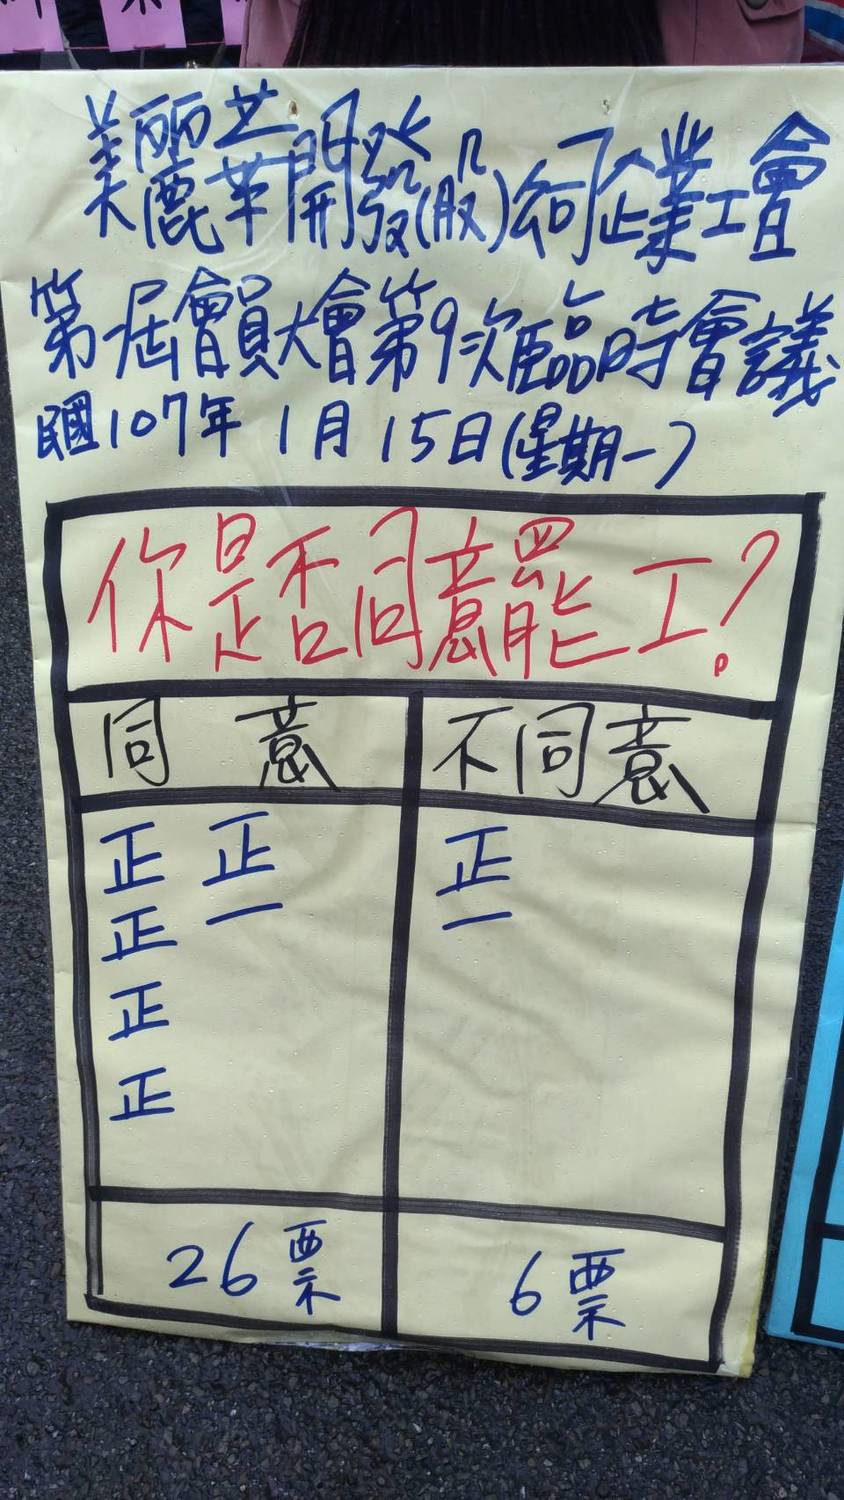 美麗華開發(股)公司企業工會
第一屆會員大會第9次臨時會議
民國107年1月15日(星期一)
你是否同意罷工?
同意 不同意
正 正 正
正 一 一
正
正
26票 6票